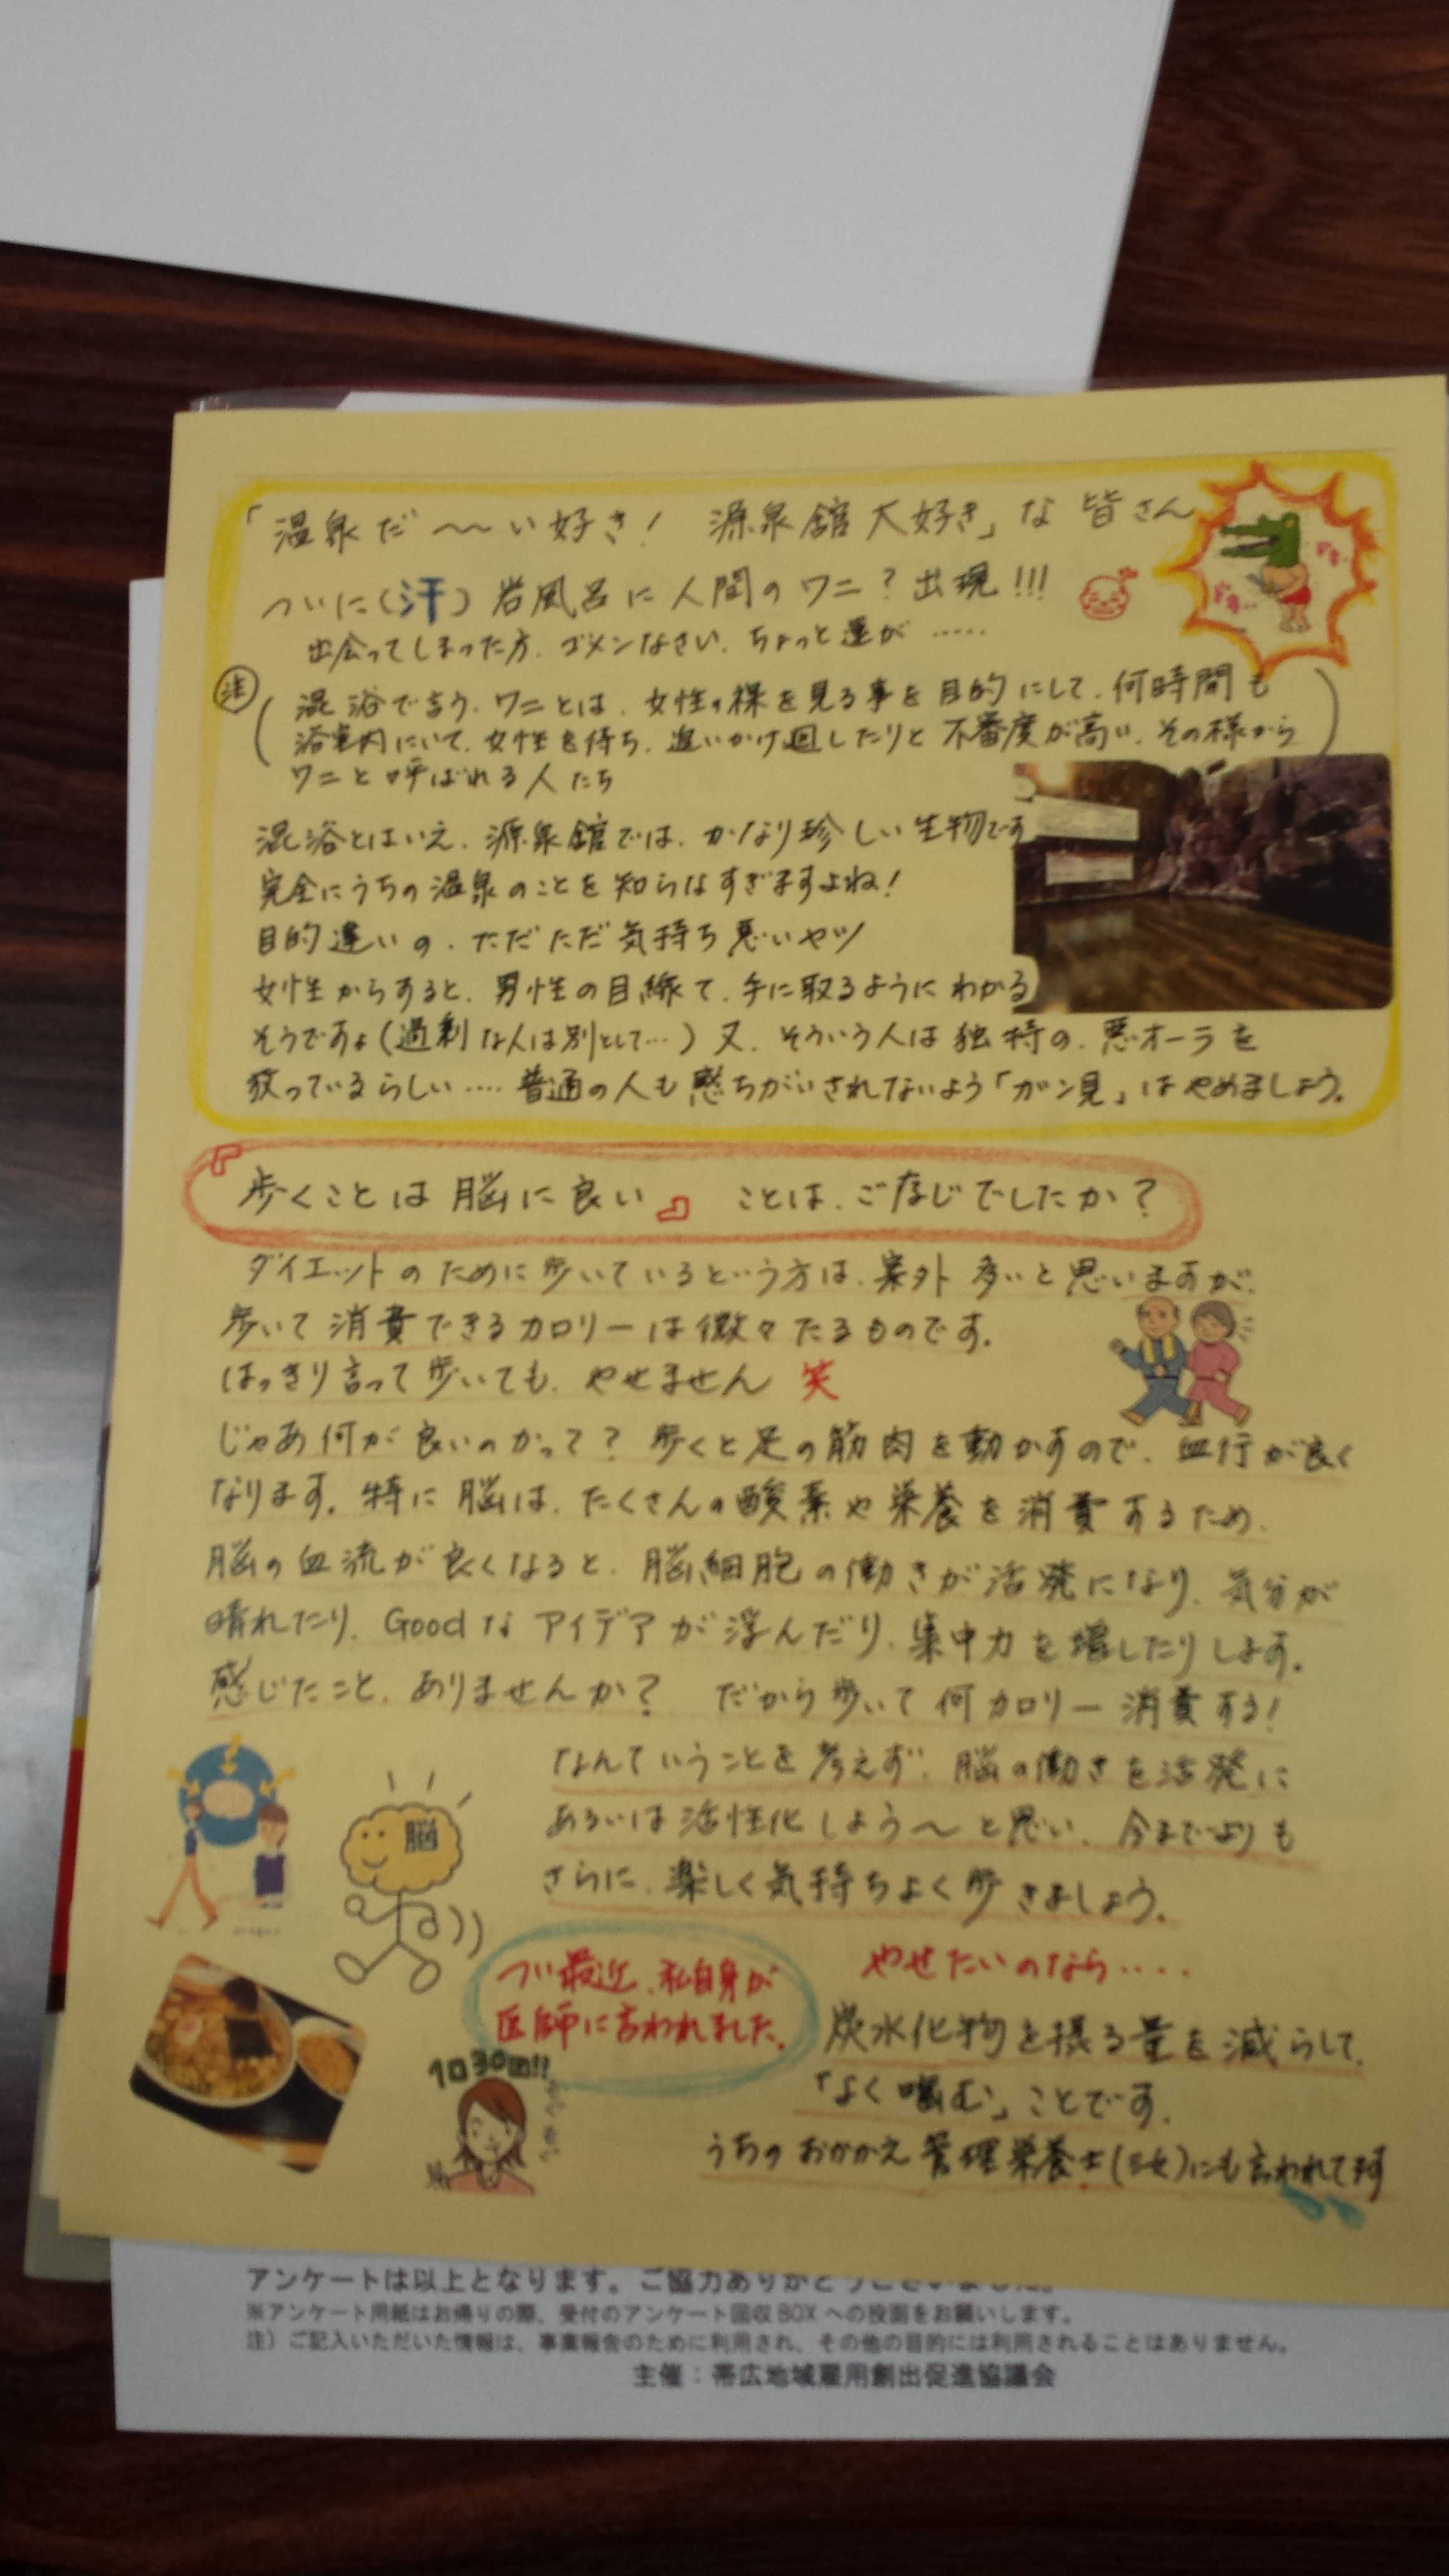 「温泉だ〜〜い好き! 源泉舘大好き」な 皆さん
ついに(汗)岩風呂に人間のワニ?出現!!!
出会ってしまった方、ゴメンなさい、ちょっと運が……
注
混浴で言う、ワニとは、女性の裸を見る事を目的にして、何時間も
浴室内にいて、女性を待ち、追いかけ回したりと不審度が高い、その様から
ワニと呼ばれる人たち
混浴とはいえ、源泉舘では、かなり珍しい生物です
完全にうちの温泉のことを知らなすぎますよね!
目的違いの、ただただ気持ち悪いヤツ
女性からすると、男性の目線て、手に取るようにわかる
そうですよ(過剰な人は別として…)又、そういう人は独特の、悪オーラを
放っているらしい‥‥普通の人も感ちがいされないよう「ガン見」はやめましょう。
『歩くことは脳に良い』 ことは、ご存じでしたか?
ダイエットのために歩いているという方は、案外多いと思いますが、
歩いて消費できるカロリーは微々たるものです。
はっきり言って歩いても、やせません 笑
じゃあ何が良いのかって?歩くと足の筋肉を動かすので、血行が良く
なります。特に脳は、たくさんの酸素や栄養を消費するため、
脳の血流が良くなると、脳細胞の働きが活発になり、気分が
晴れたり、Goodなアイデアが浮んだり、集中力を増したりします。
感じたこと、ありませんか? だから歩いて何カロリー消費する!
なんていうことを考えず、脳の働きを活発に
あるいは活性化しよう〜と思い、今までよりも
さらに、楽しく気持ちよく歩きましょう。
脳
つい最近、私自身が
医師に言われました。
やせたいのなら‥‥
炭水化物を摂る量を減らして、
「よく噛む」ことです。
1口30回!!
うちのおかかえ管理栄養士(三女)にも言われてます
アンケートは以上となります。ご協力ありがとうございました。
※アンケート用紙はお帰りの際、受付のアンケート回収BOXへの投函をお願いします。
注)ご記入いただいた情報は、事業報告のために利用され、その他の目的には利用されることはありません。
主催:帯広地域雇用創出促進協議会